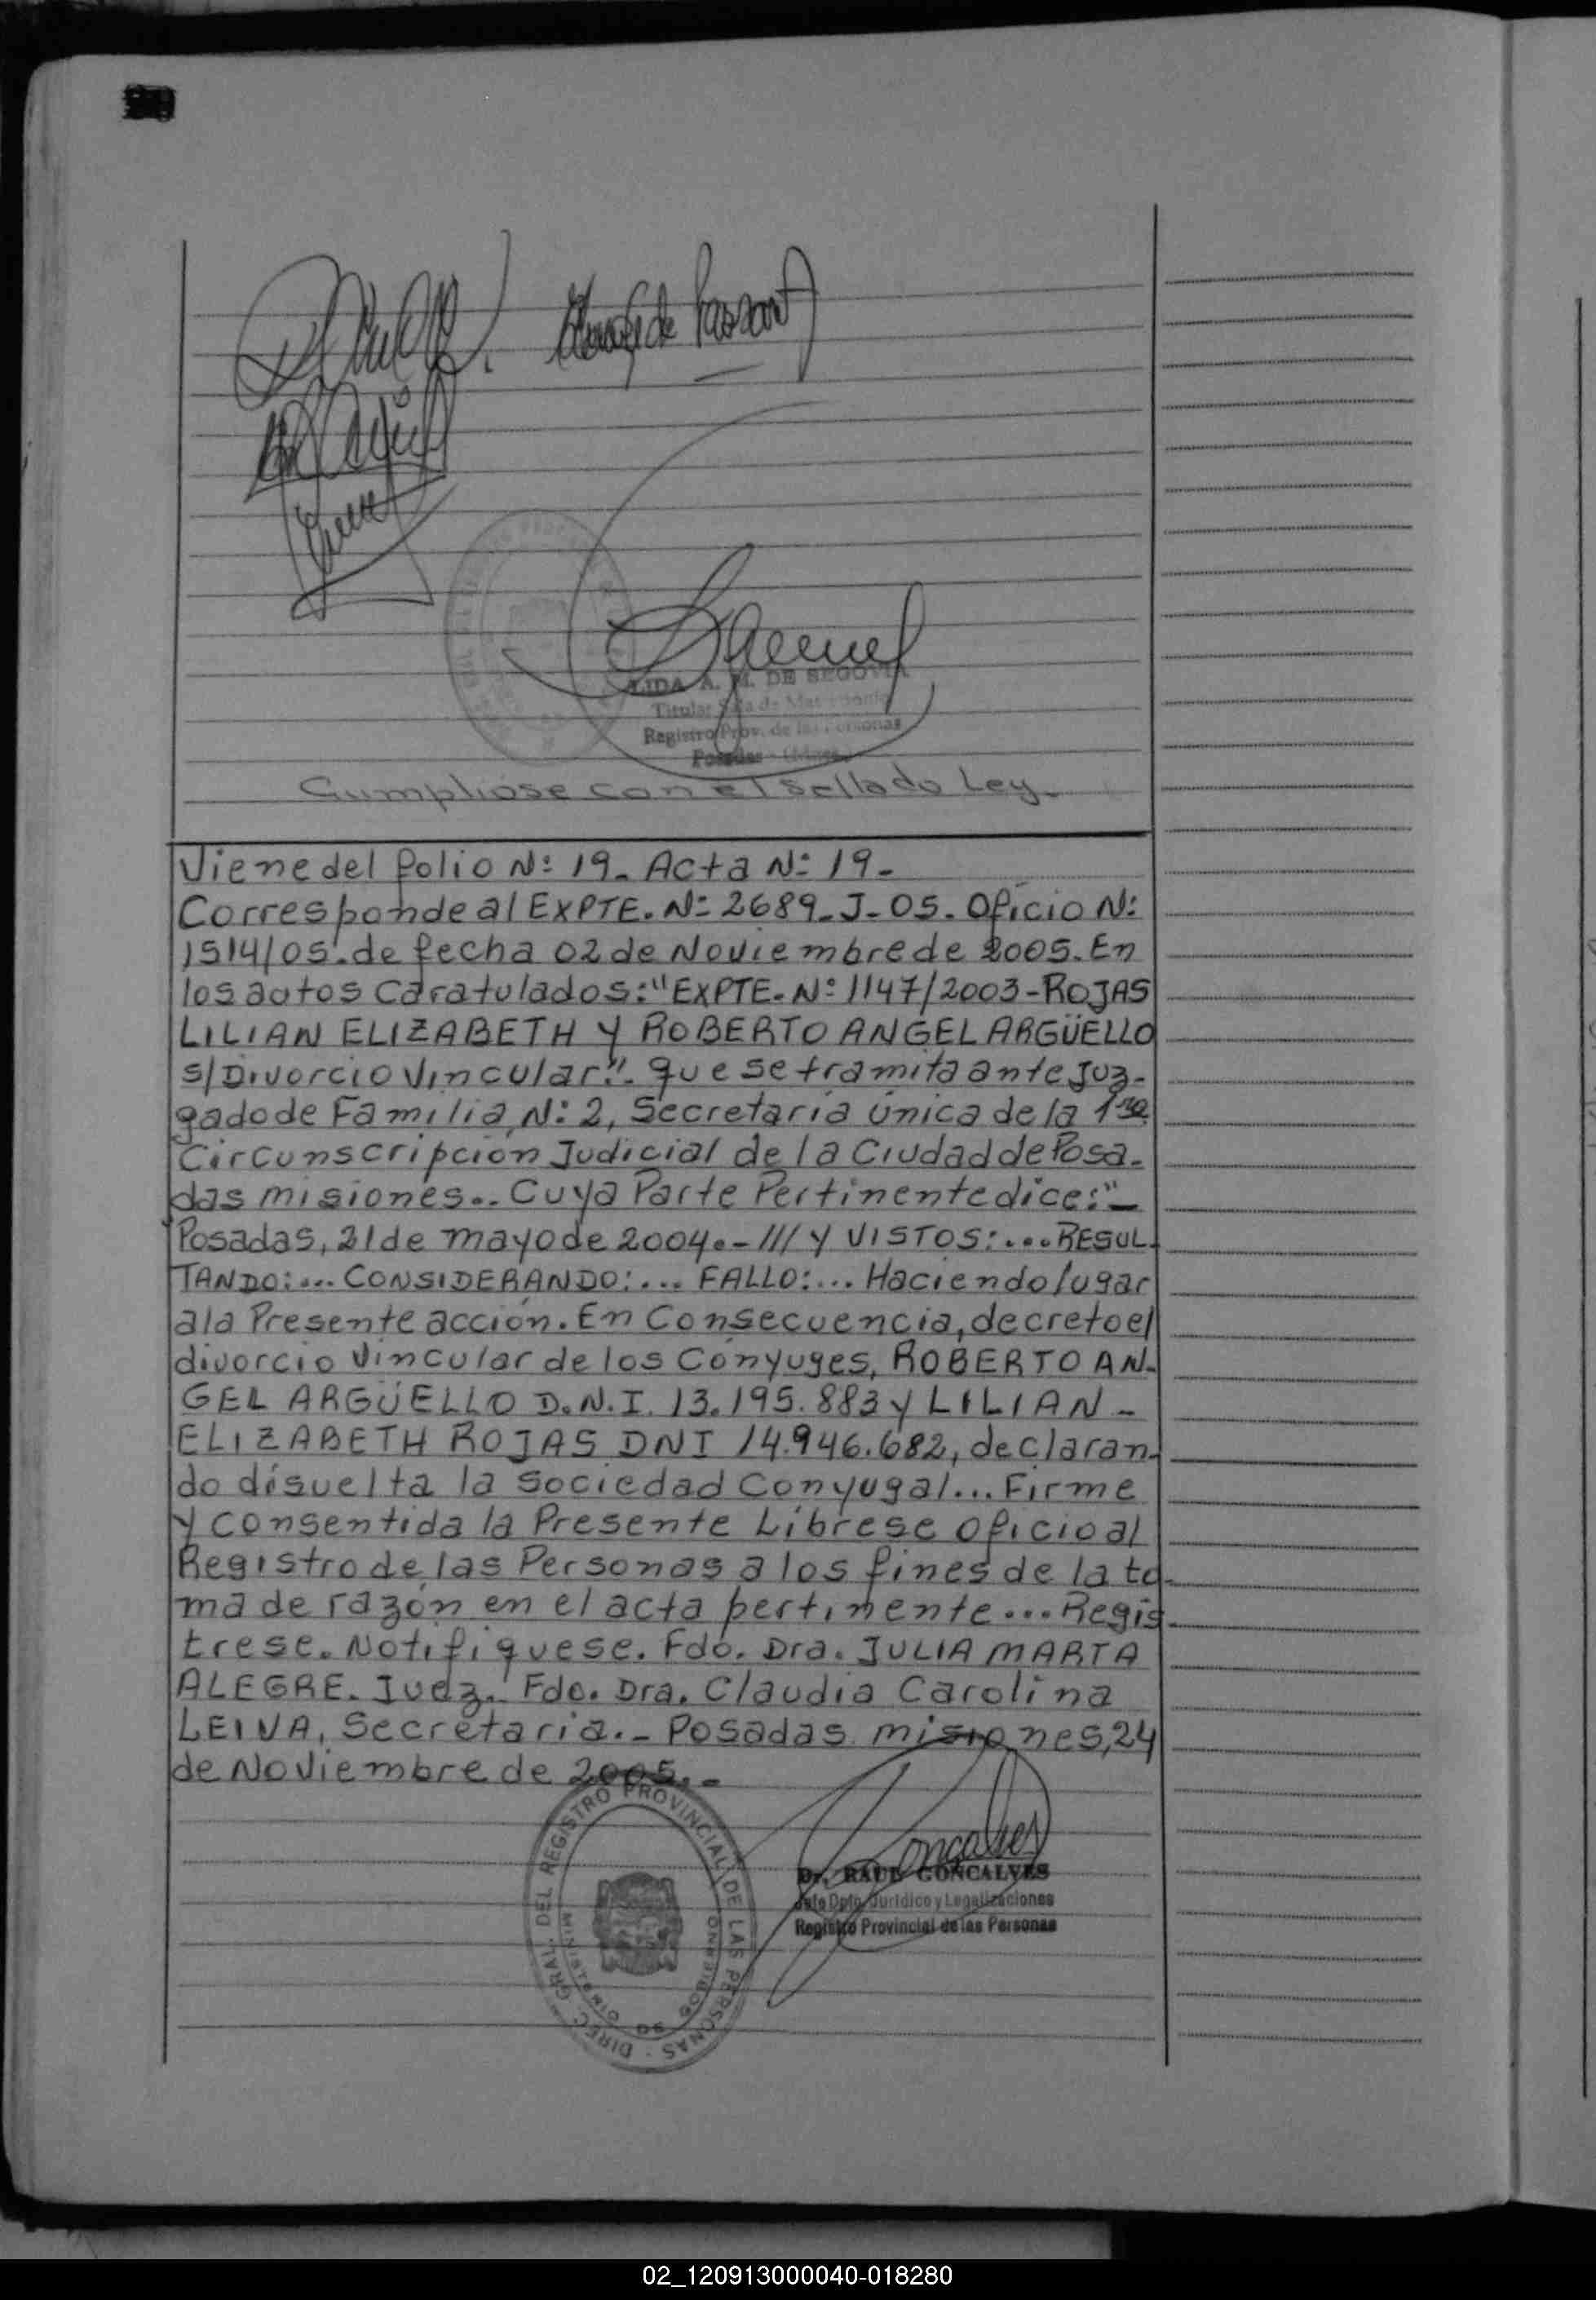 LIDA A. M. DE SEGOVIA
Titular Sala de Matrimonio
Registro Prov. de las Personas
Posadas - (Mnes.)
Cumpliose con el Sellado Ley.
Viene del folio Nº 19. Acta Nº 19.
Corresponde al EXPTE. Nº 2689. J-05. Oficio Nº
1514/05. de fecha 02 de Noviembre de 2005. En
los autos Caratulados: "EXPTE. Nº 1147/2003 - ROJAS
LILIAN ELIZABETH Y ROBERTO ANGEL ARGÜELLO
S/Divorcio Vincular". que se tramita ante Juz-
gado de Familia Nº 2, Secretaría única de la 1ra
Circunscripción Judicial de la Ciudad de Posa-
das misiones.. Cuya Parte Pertinente dice:"-
"Posadas, 21 de mayo de 2004.- /// Y VISTOS:... RESUL-
TANDO:... CONSIDERANDO:... FALLO:... Haciendo lugar
a la Presente acción. En Consecuencia, decreto el
divorcio Vincular de los Cónyuges, ROBERTO AN-
GEL ARGÜELLO D.N.I. 13.195.883 y LILIAN -
ELIZABETH ROJAS DNI 14.946.682, declaran-
do disuelta la Sociedad Conyugal... Firme
y Consentida la Presente Líbrese oficio al
Registro de las Personas a los fines de la to-
ma de razón en el acta pertinente... Regís-
trese. Notifíquese. Fdo. Dra. JULIA MARTA
ALEGRE. Juez. Fdo. Dra. Claudia Carolina
LEIVA, Secretaria.- Posadas misiones, 24
de Noviembre de 2005.-
DIREC. GRAL. DEL REGISTRO PROVINCIAL DE LAS PERSONAS
MINISTERIO DE GOBIERNO
Dr. RAUL GONCALVES
Jefe Dpto. Jurídico y Legalizaciones
Registro Provincial de las Personas
02_120913000040-018280